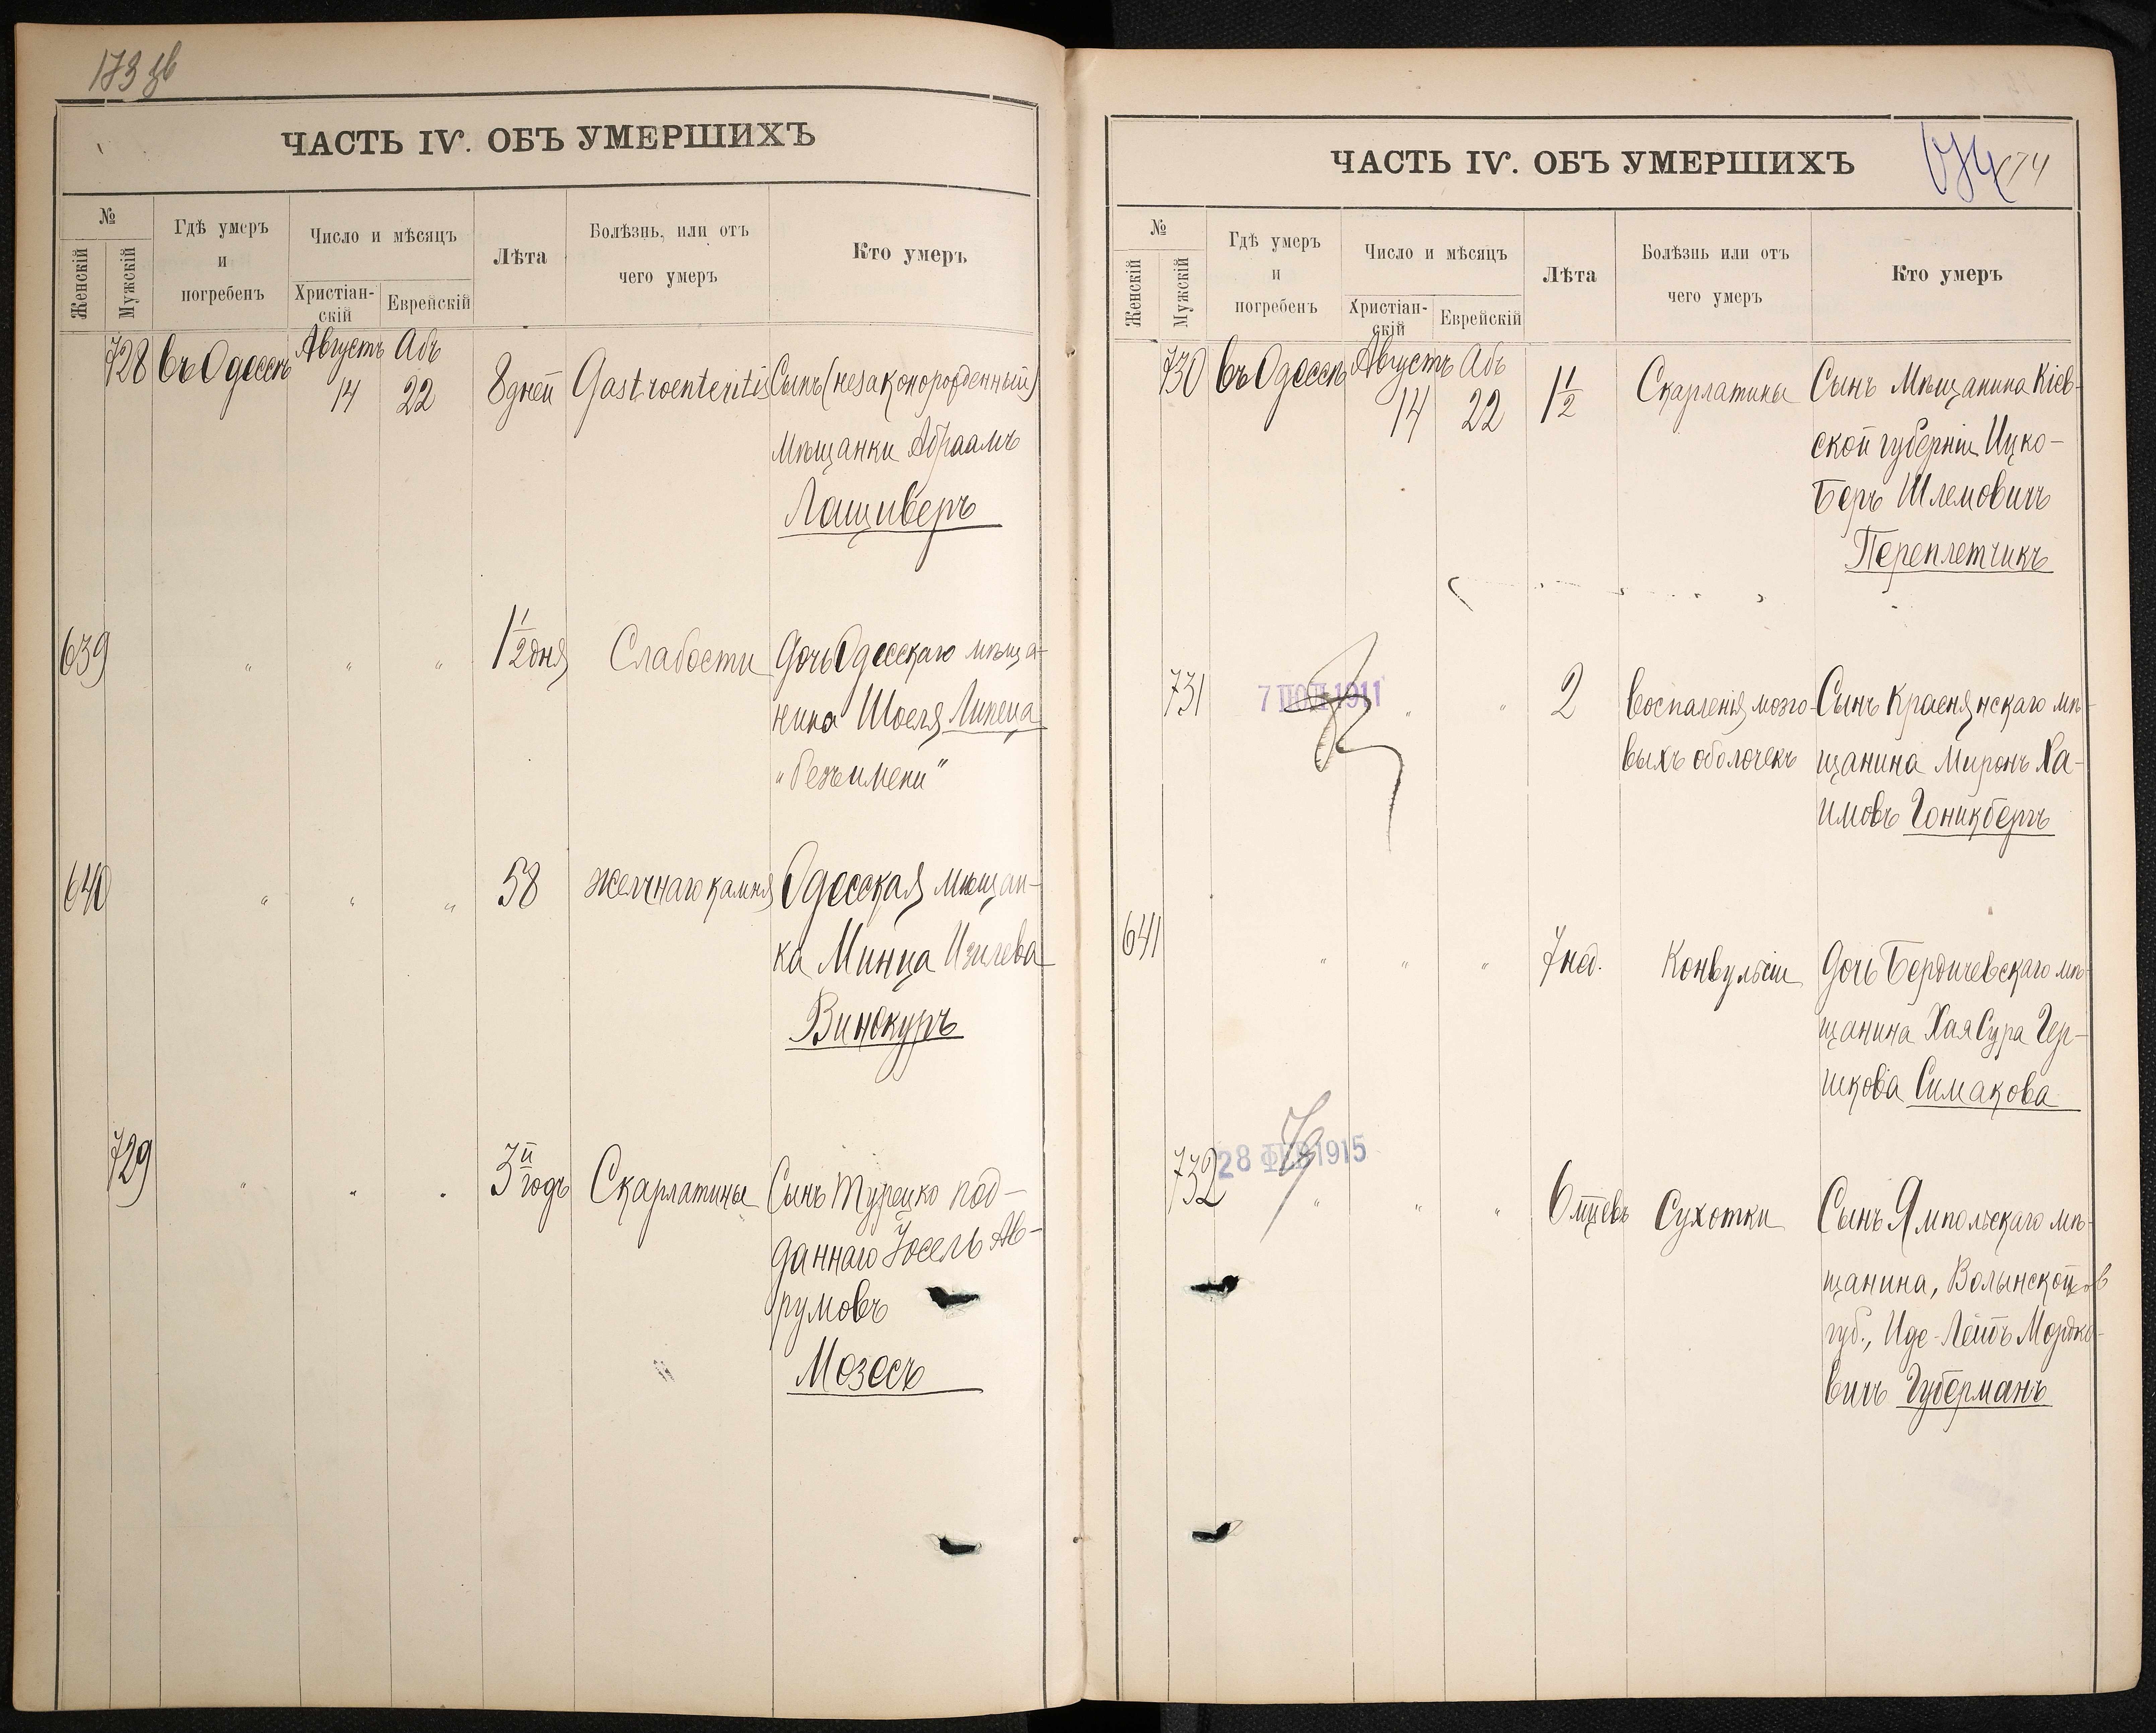 173 об
ЧАСТЬ IV. ОБЪ УМЕРШИХЪ
№
Женскій
Мужскій
Гдѣ умеръ
и
погребенъ
Число и мѣсяцъ
Христіан-
скій
Еврейскій
Лѣта
Болѣзнь, или отъ
чего умеръ
Кто умеръ
728 въ Одессѣ Августъ 14 Абъ 22 8 дней Gastroenteritis Сынъ (незаконорожденный)
Мѣщанки Абраамъ
Лащиверъ
639 " " " 1 1/2 дня Слабости Дочь Одесскаго мѣща-
нина Шоеля Липеца
"Безъ имени"
640 " " " 58 Желчнаго камня Одесская мѣщан-
ка Минца Изилева
Винокуръ
729 " " " 3й годъ Скарлатины Сынъ Турецко под-
даннаго Іосель Ав-
румовъ
Мозесъ
ЧАСТЬ IV. ОБЪ УМЕРШИХЪ
174 174
№
Женскій
Мужскій
Гдѣ умеръ
и
погребенъ
Число и мѣсяцъ
Христіан-
скій
Еврейскій
Лѣта
Болѣзнь или отъ
чего умеръ
Кто умеръ
730 въ Одессѣ Августъ 14 Абъ 22 1 1/2 Скарлатины Сынъ Мѣщанина Кіев-
ской губерніи Ицко-
Беръ Шлемовичъ
Переплетчикъ
731 7 ІЮЛ 1911 " " 2 Воспаленія мозго- Сынъ Краснянскаго мѣ-
выхъ оболочекъ щанина Миронъ Ха-
имовъ Гоникбергъ
641 " " " 7 нед. Конвульсіи Дочь Бердичевскаго мѣ-
щанина Хая Сура Гер-
шкова Симакова
732 28 ФЕВ 1915 " " " 6 мцевъ Сухотки Сынъ Ямпольскаго мѣ-
щанина, Волынской
губ., Иде-Лейбъ Мордко-
вичъ Губерманъ